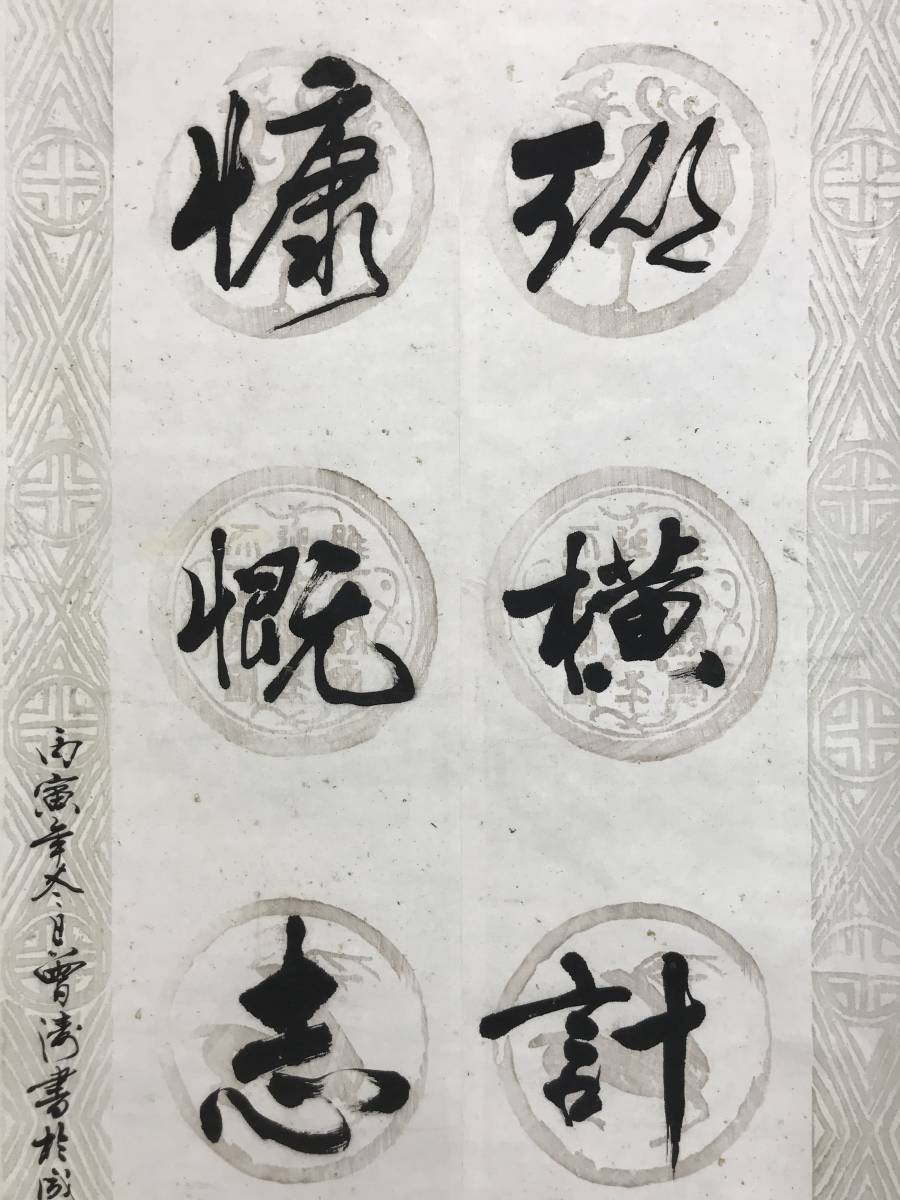 縱橫計
慷慨志
丙寅年冬月曾涛書於